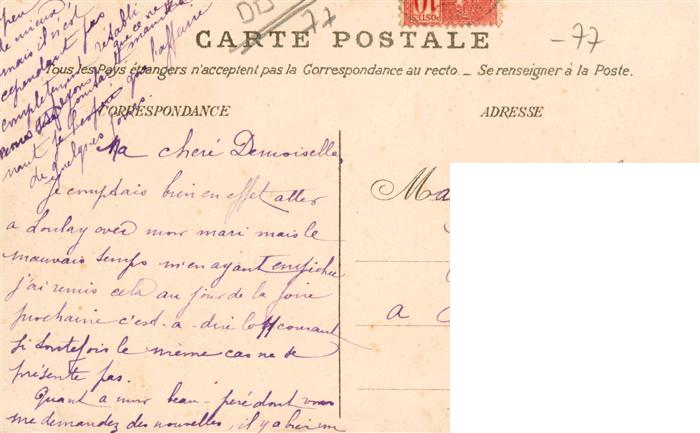 DD
77
10
POSTES
CARTE POSTALE
-77
Tous les Pays étrangers n'acceptent pas la Correspondance au recto. _ Se renseigner à la Poste.
CORRESPONDANCE
ADRESSE
Ma cheré Demoiselle,
Je comptais bien en effet aller
a Loulay avec mon mari mais le
mauvais temps m'en ayant empiché
j'ai remis cela au jour de la foire
prochaine c'est-a-dire le courant
Si toutefois le même cas ne se
présente pas.
Quant a mon beau-peré dont vous
me demandez des nouvelles, il y a bien un
peu
de mieux,
mais il n'est
cependant pas
complètement rétabli
que ce ne
maintenant
l'affaire
de quelques jours.
Ma
a